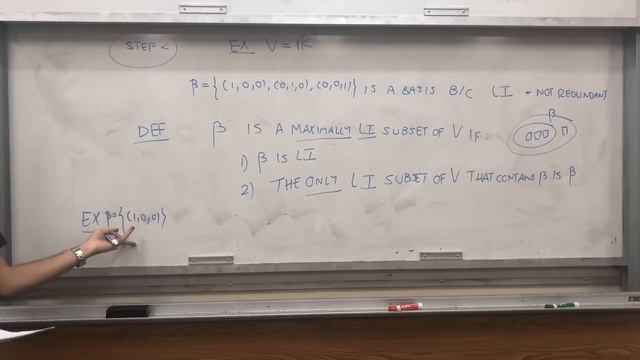 STEP <
EX V=ℝ³
β={(1,0,0), (0,1,0), (0,0,1)} IS A BASIS B/C LI + NOT REDUNDANT
DEF β IS A MAXIMALLY LI SUBSET OF V IF:
β
1) β IS LI
2) THE ONLY LI SUBSET OF V THAT CONTAINS β IS β
EX β={(1,0,0)}